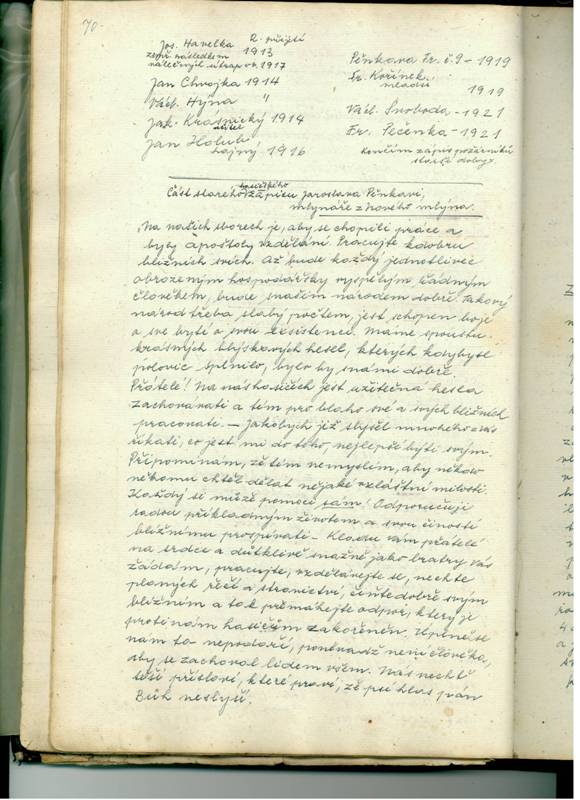 70.
Jos. Havelka R. přijetí 1913
zemř. následkem
válečných útrap r. 1917
Jan Chvojka 1914
Václ. Hýna "
Jak. Krásnický 1914
Jan Holub
hajný 1916
Pěnkava Fr. č. 9 - 1919
Fr. Kořínek
mladší 1919
Václ. Svoboda - 1921
Fr. Pečenka - 1921
Končím zápis požárníků
staré doby.
Část starého hasičského zápisu Jaroslava Pěnkavi,
mlynáře z Nového mlýna.
„Na našich sborech je, aby se chopili práce a
byly apoštoly vzdělání. Pracujte k dobru
bližních svích. Až bude každý jednotlivec
obrozeným hospodářsky vyspělým řádným
člověkem, bude s naším národem dobře. Takový
národ třeba slabý počtem, jest schopen boje
o své bytí a svou existenci. Máme spoustu
krásných blýskavých hesel, kterých kdyby se
polovic splnilo, bylo by s námi dobře.
Přátelé! Na nás hasičích jest užitečná hesla
zachovávati a tím pro blaho své a svých bližních
pracovati. — Jakobych již slyšel mnohého z vás
říkati, co jest mi do toho, nejlépe býti svým.
Připomínám, že tím nemyslím, aby někdo
někomu chtěl dělat nějaké zvláštní milosti.
Každý si může pomoci sám! Odporučuji
radou příkladným životem a svou činností
bližnímu prospívati - Kladu vám přátelé
na srdce a důtklivě snažně jako bratry vás
žádám, pracujte, vzdělávejte se, nechte
planých řečí a stranictví, čiňte dobře svým
bližním a tak přemáhejte odpor, který je
proti nám hasičům zakořeněn. Úplně se
nám to nepodaří, poněvadž není člověka,
aby se zachoval lidem všem. Nás nechť
těší přísloví, které praví, že psí hlas pán
Bůh neslyší.